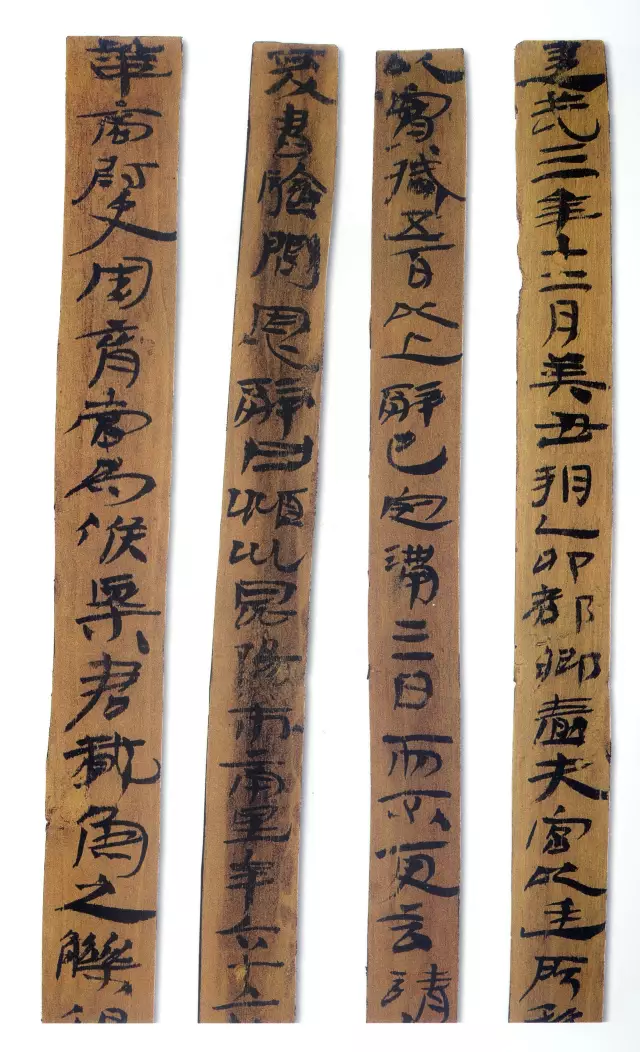 建武三年十二月癸丑朔乙卯都鄉嗇夫宮以廷所移
以實臧五百以上辭已定滿三日而不更言請
爰書驗問恩辭曰潁川昆陽市南里年六十六
華商尉史周育當為候粟君載魚之觻得